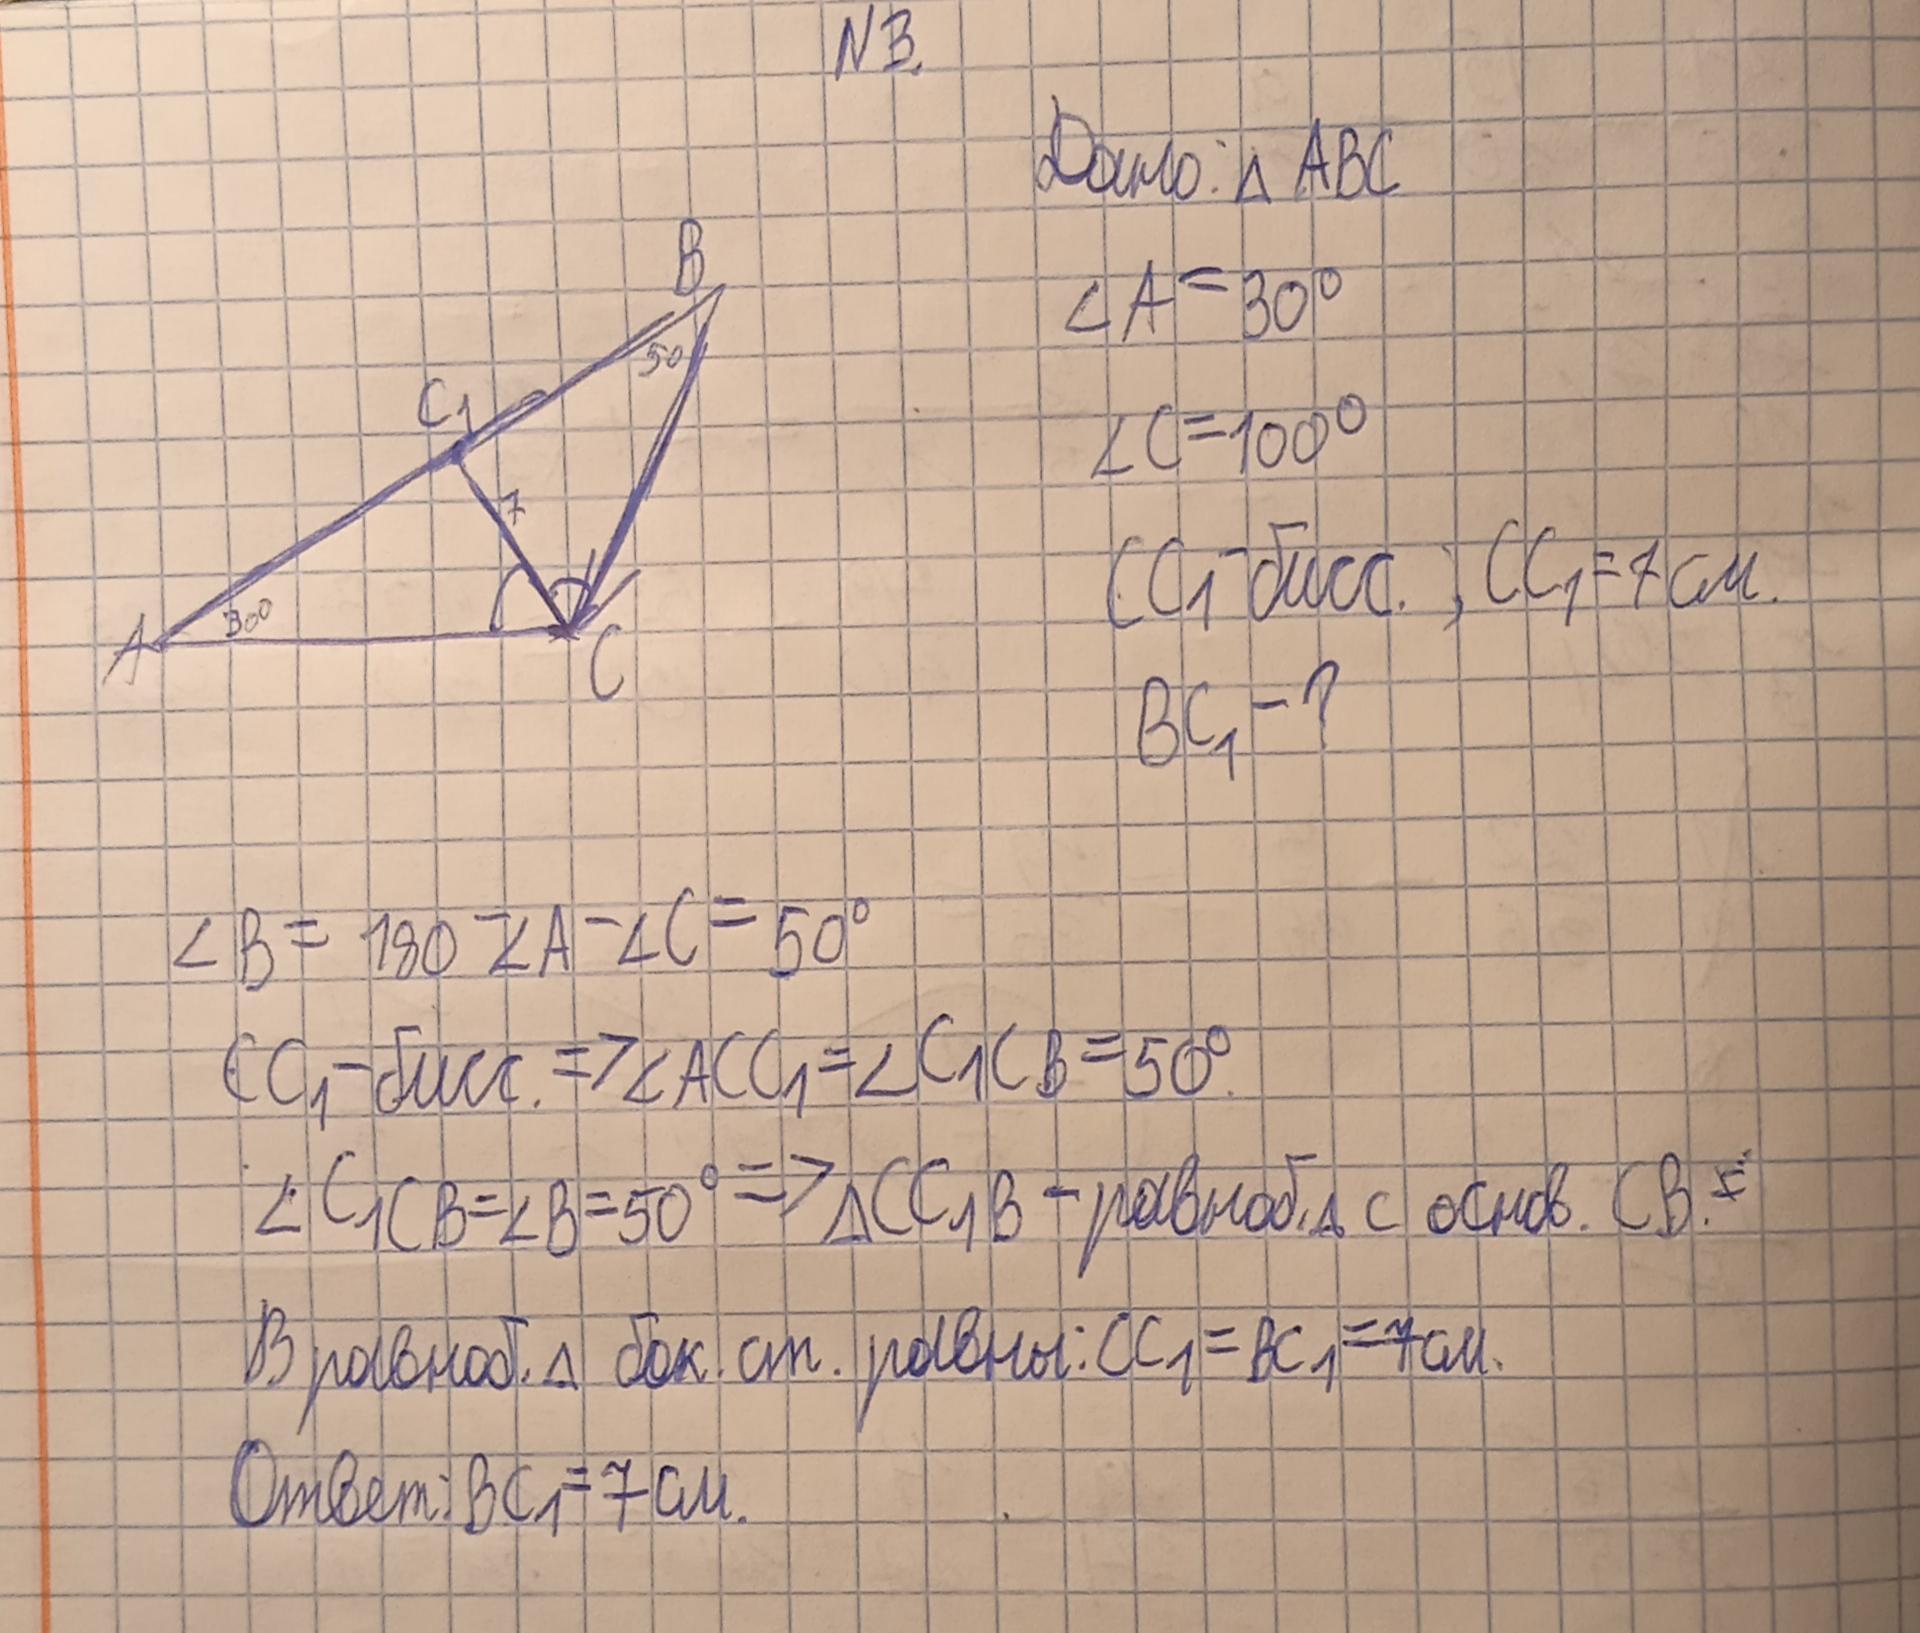 N3.
Дано: △ ABC
∠A = 30°
∠C = 100°
CC₁ - бисс. ; CC₁ = 7 см.
BC₁ - ?
B
50
C₁
7
30°
A
C
∠B = 180 - ∠A - ∠C = 50°
CC₁ - бисс. => ∠ACC₁ = ∠C₁CB = 50°.
∠C₁CB = ∠B = 50° => △CC₁B - равноб. △ с основ. CB.
В равноб. △ бок. ст. равны: CC₁ = BC₁ = 7 см.
Ответ: BC₁ = 7 см.